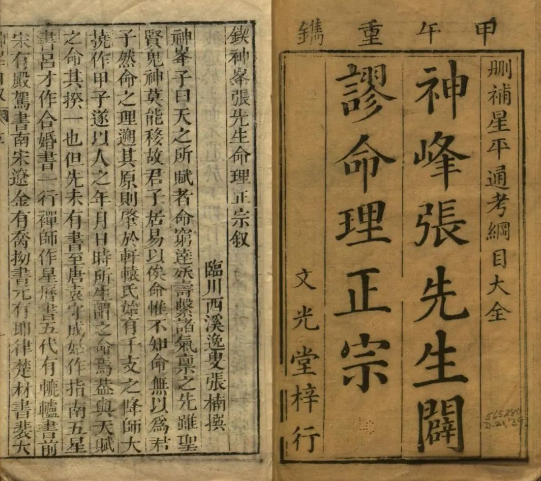 甲午重鐫
刪補星平通考綱目大全
神峰張先生闢
謬命理正宗
文光堂梓行
鍥神峯張先生命理正宗叙
臨川西溪逸叟張楠撰
神峯子曰天之所賦者命窮達殀壽繫諸氣禀之先雖聖
賢鬼神莫能移故君子居易以俟命惟不知命無以爲君
子然命之理遡其原則肇於軒轅氏始有干支之降師大
撓作甲子遂以人之年月日時所生謂之命焉盖與天賦
之命其揆一也但先未有書至唐袁守成始作指南五星
書呂才作合婚書一行禪師作星曆書五代有轆轤書前
宋有殿駕書南宋遼金有喬拗書元有耶律楚材書裴大